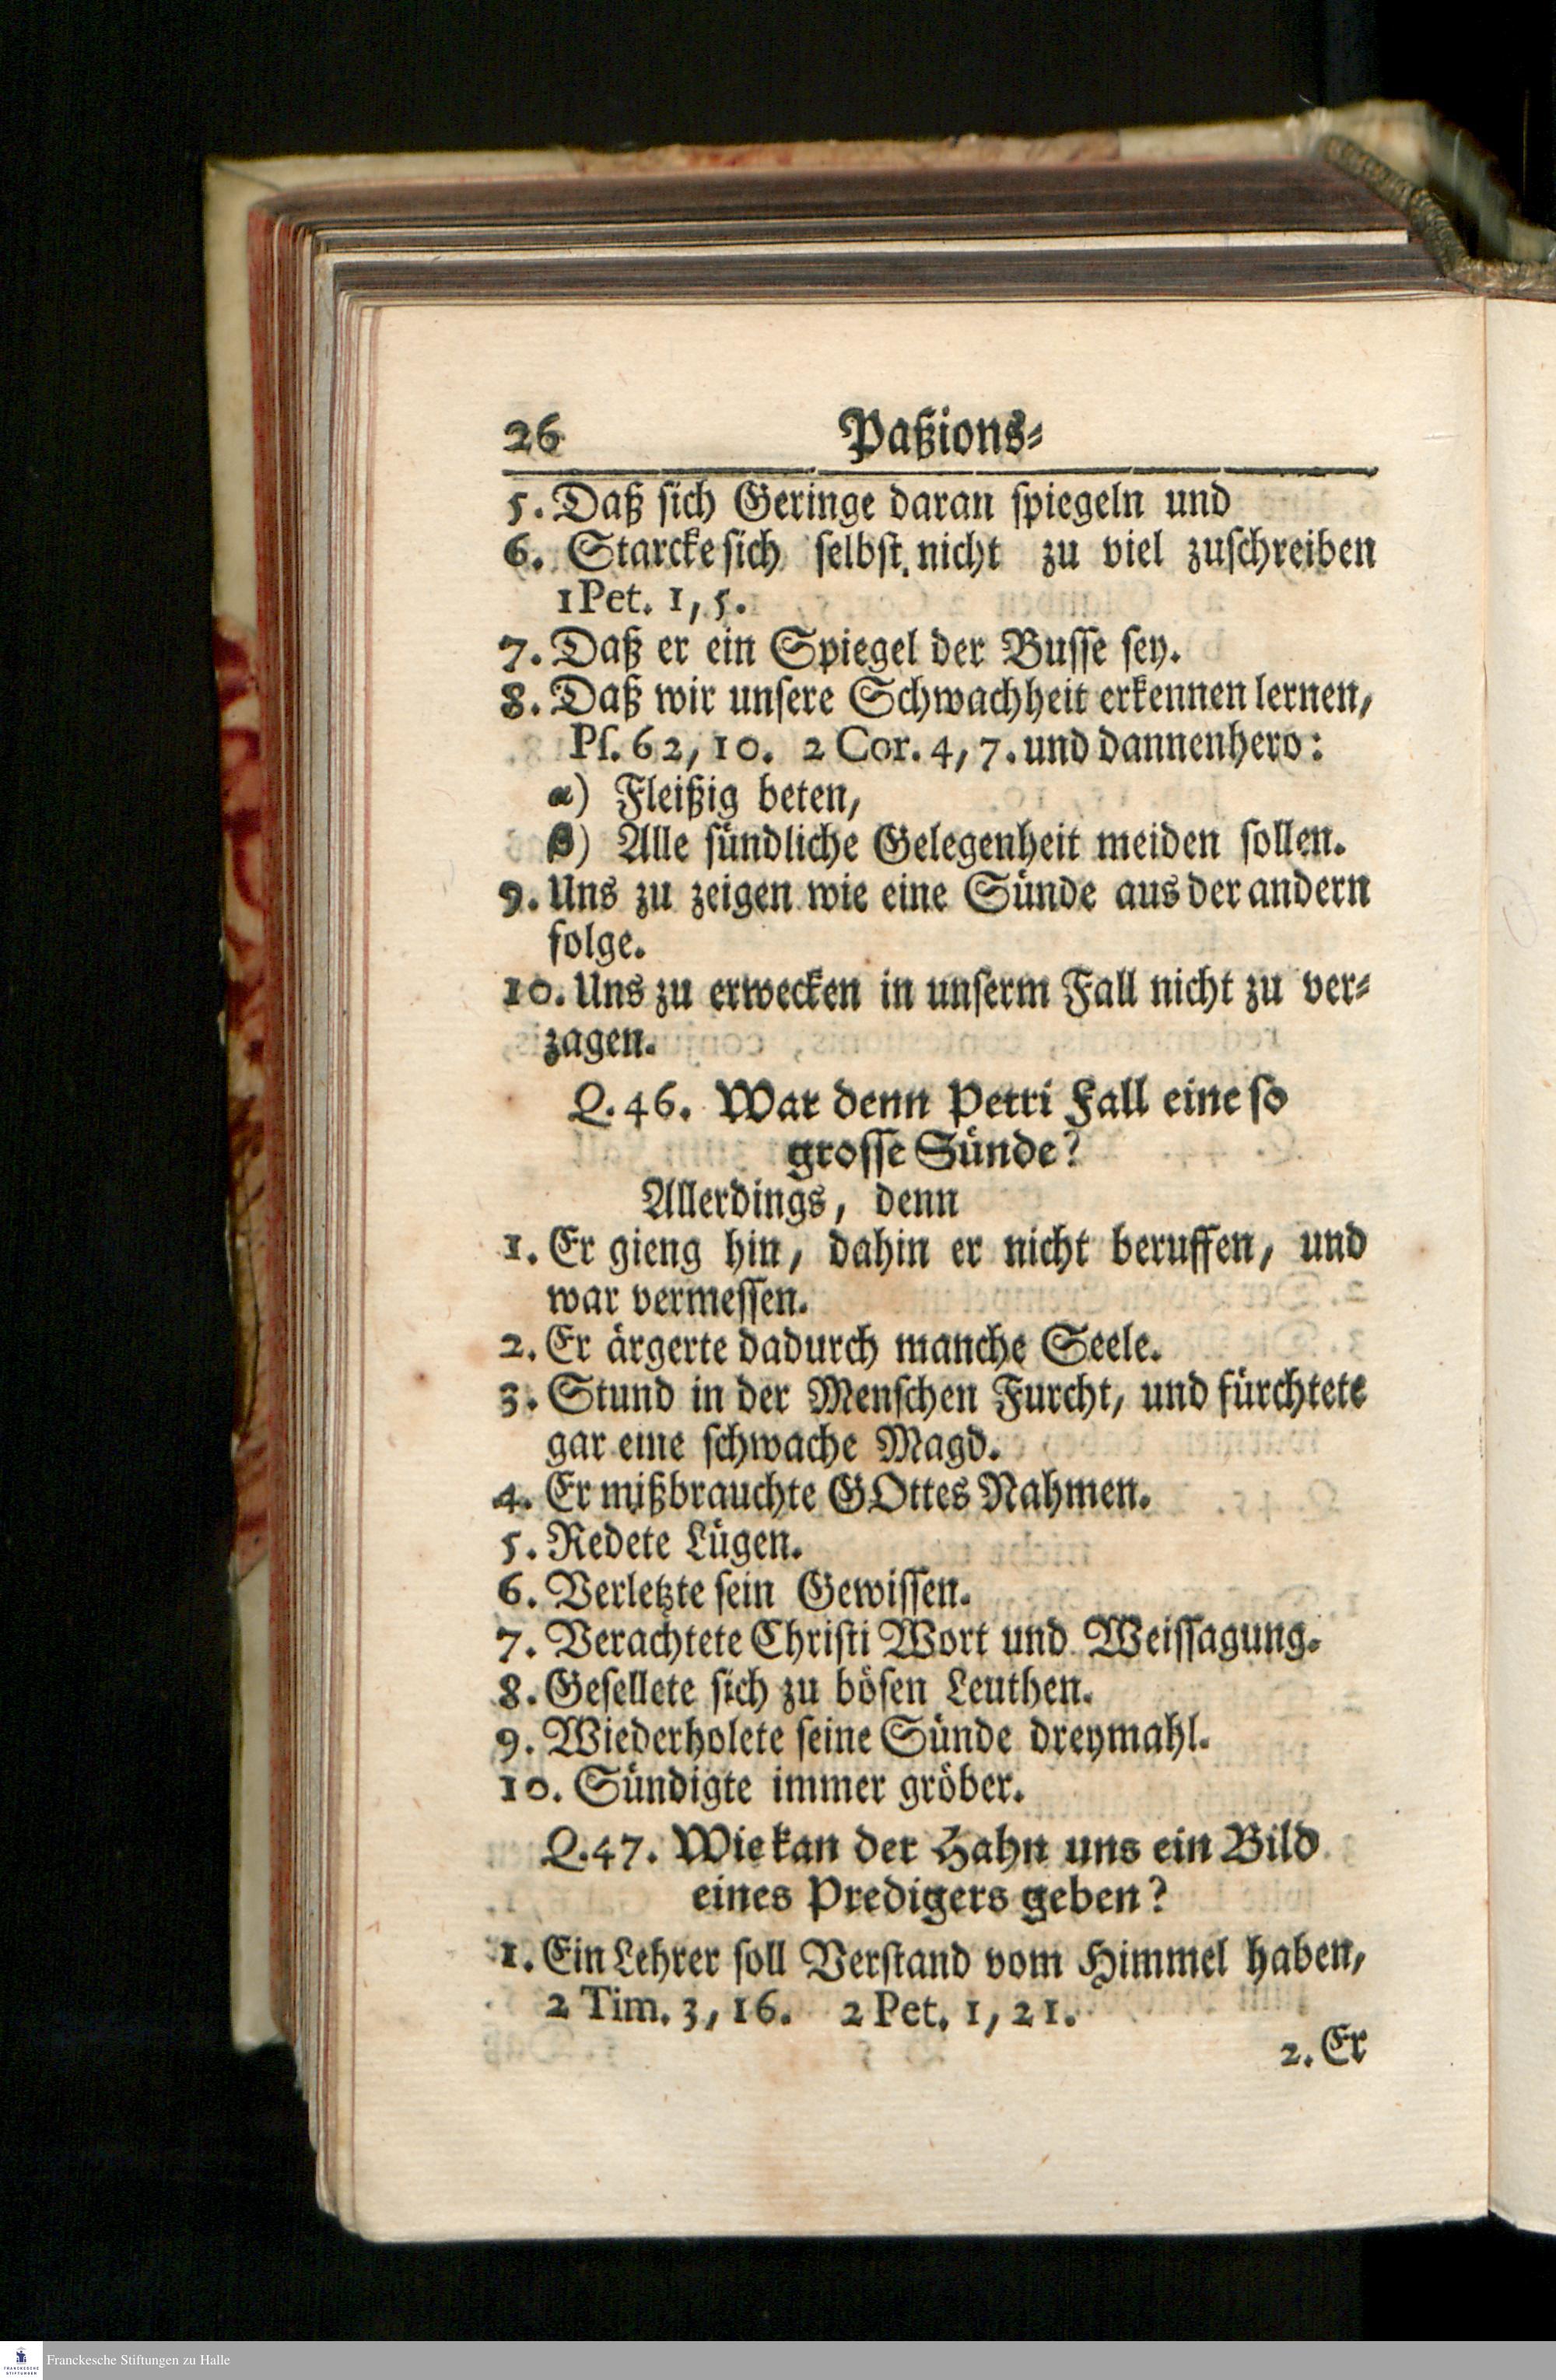 26 Paßions-
5. Daß sich Geringe daran spiegeln und
6. Starcke sich selbst nicht zu viel zuschreiben
1 Pet. 1, 5.
7. Daß er ein Spiegel der Busse sey.
8. Daß wir unsere Schwachheit erkennen lernen,
Ps. 62, 10. 2 Cor. 4, 7. und dannenhero:
α) Fleißig beten,
β) Alle sündliche Gelegenheit meiden sollen.
9. Uns zu zeigen wie eine Sünde aus der andern
folge.
10. Uns zu erwecken in unserm Fall nicht zu ver-
zagen.
Q. 46. War denn Petri Fall eine so
grosse Sünde?
Allerdings, denn
1. Er gieng hin, dahin er nicht beruffen, und
war vermessen.
2. Er ärgerte dadurch manche Seele.
3. Stund in der Menschen Furcht, und fürchtete
gar eine schwache Magd.
4. Er mißbrauchte GOttes Nahmen.
5. Redete Lügen.
6. Verletzte sein Gewissen.
7. Verachtete Christi Wort und Weissagung.
8. Gesellete sich zu bösen Leuthen.
9. Wiederholete seine Sünde dreymahl.
10. Sündigte immer gröber.
Q. 47. Wie kan der Hahn uns ein Bild
eines Predigers geben?
1. Ein Lehrer soll Verstand vom Himmel haben,
2 Tim. 3, 16. 2 Pet. 1, 21.
2. Er
FRANCKESCHE
STIFTUNGEN
Franckesche Stiftungen zu Halle